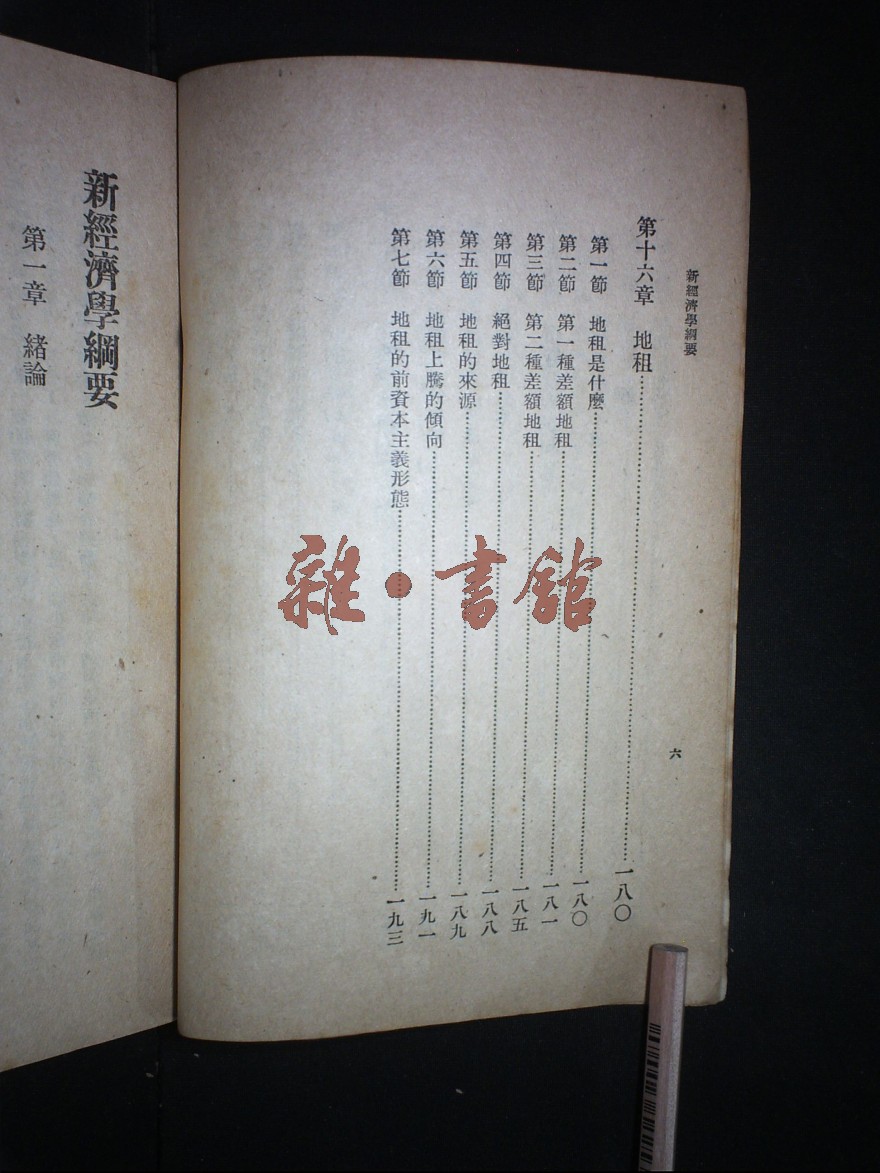 新經濟學綱要
六
第十六章 地租……一八〇
第一節 地租是什麼……一八〇
第二節 第一種差額地租……一八一
第三節 第二種差額地租……一八五
第四節 絕對地租……一八八
第五節 地租的來源……一八九
第六節 地租上騰的傾向……一九一
第七節 地租的前資本主義形態……一九三
新經濟學綱要
第一章 緒論
雜·書館